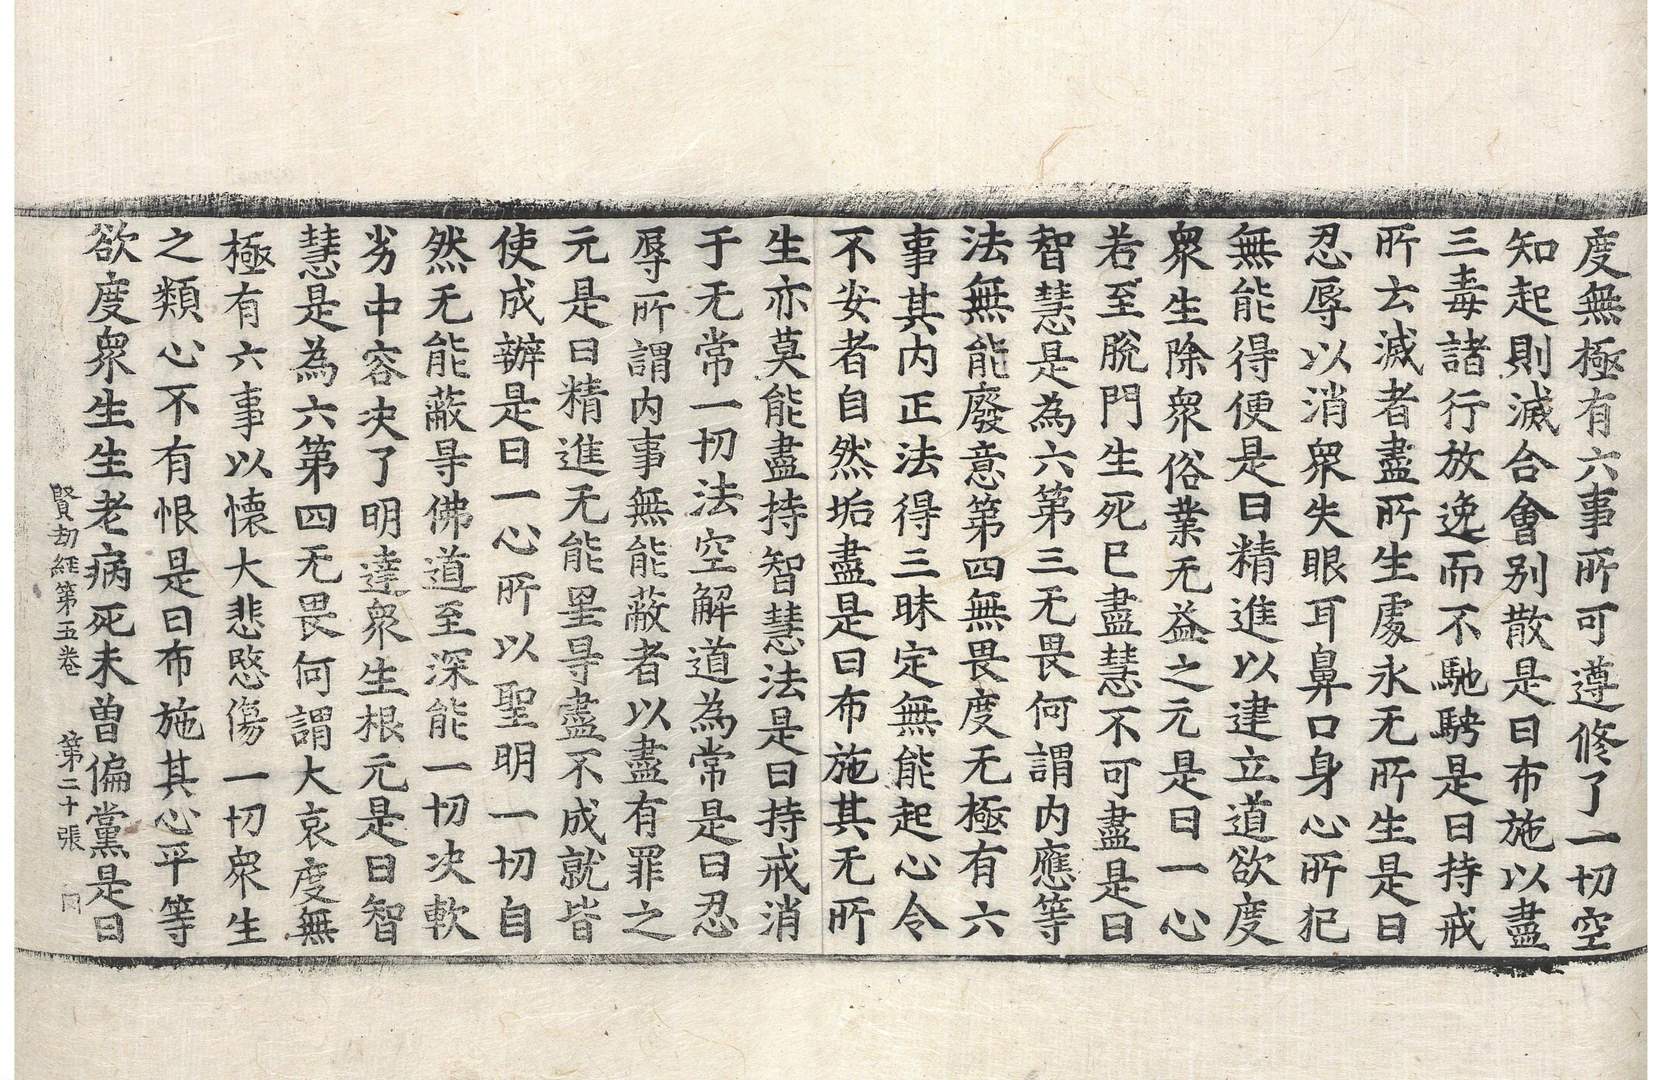 度無極有六事所可遵修了一切空
知起則滅合會別散是曰布施以盡
三毒諸行放逸而不馳騁是曰持戒
所去滅者盡所生處永无所生是曰
忍辱以消衆失眼耳鼻口身心所犯
無能得便是曰精進以建立道欲度
衆生除衆俗業无益之元是曰一心
若至脫門生死已盡慧不可盡是曰
智慧是為六第三无畏何謂內應等
法無能廢意第四無畏度无極有六
事其內正法得三昧定無能起心令
不安者自然垢盡是曰布施其无所
生亦莫能盡持智慧法是曰持戒消
于无常一切法空解道為常是曰忍
辱所謂內事無能蔽者以盡有罪之
元是曰精進无能罣㝵盡不成就皆
使成辦是曰一心所以聖明一切自
然无能蔽㝵佛道至深能一切决軟
劣中容决了明達衆生根元是曰智
慧是為六第四无畏何謂大哀度無
極有六事以懷大悲愍傷一切衆生
之類心不有恨是曰布施其心平等
欲度衆生生老病死未曾偏黨是曰
賢劫經第五卷 第二十張 罔